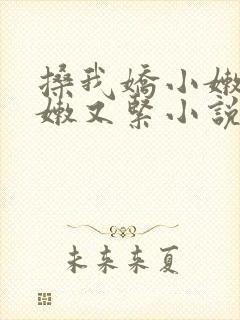 搡我嬌小嫩
嫩又緊小說
未来来夏